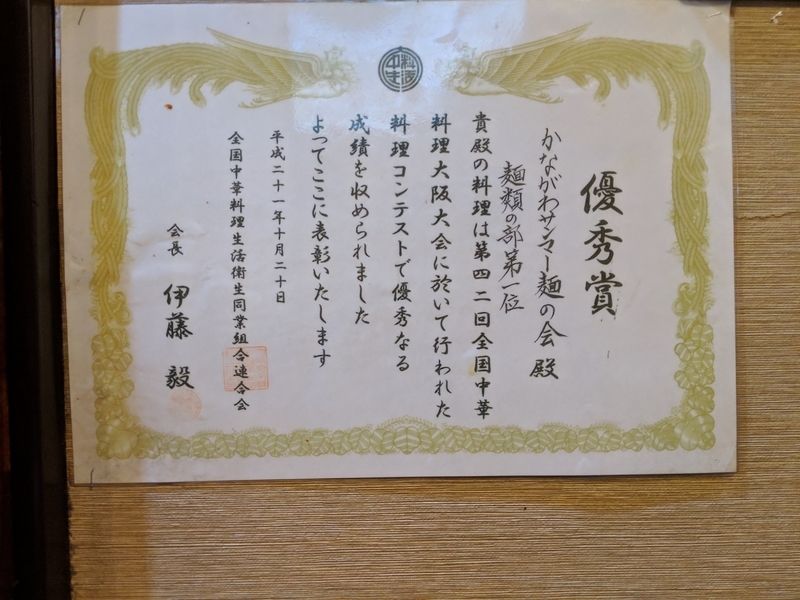 優秀賞
かながわサンマー麺の会 殿
麺類の部第一位
貴殿の料理は第四二回全国中華
料理大阪大会に於いて行われた
料理コンテストで優秀なる
成績を収められました
よってここに表彰いたします
平成二十一年十月二十日
全国中華料理生活衛生同業組合連合会
会長 伊藤 毅